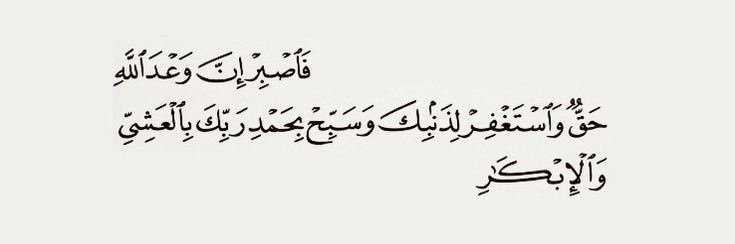 فَٱصۡبِرۡ إِنَّ وَعۡدَ ٱللَّهِ
حَقّٞ وَٱسۡتَغۡفِرۡ لِذَنۢبِكَ وَسَبِّحۡ بِحَمۡدِ رَبِّكَ بِٱلۡعَشِيِّ
وَٱلۡإِبۡكَٰرِ